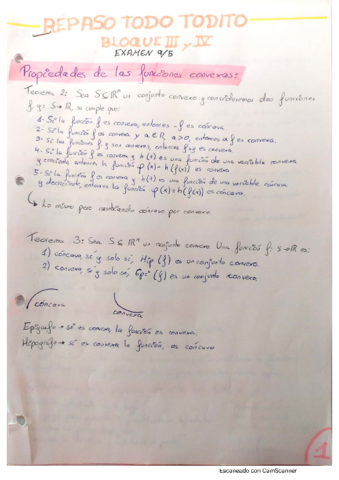 REPASO TODO TODITO
BLOQUE III y IV
EXAMEN 9/5
Propiedades de las funciones convexas:
Teorema 2: Sea S ⊆ ℝⁿ un conjunto convexo y consideremos dos funciones
f, g: S→ℝ, se cumple que:
1- Si la función f es convexa, entonces -f es cóncava.
2- Si la función f es convexa y a∈ℝ, a>0, entonces a f es convexa.
3- Si las funciones f, g son convexas, entonces f+g es convexa.
4- Si la función f es convexa y h(t) es una función de una variable convexa
y creciente, entonces la función φ(x)=h(f(x)) es convexa
5- Si la función f es convexa y h(t) es una función de una variable cóncava
y decreciente, entonces la función φ(x)=h(f(x)) es cóncava
↳ Lo mismo pero cambiando cóncavo por convexo
Teorema 3: Sea S⊆ℝⁿ un conjunto convexo. Una función f: S→ℝ es:
1) cóncava, si y solo si, Hip(f) es un conjunto convexo.
2) convexa, si y solo si, Epi(f) es un conjunto convexo.
cóncava
convexa
Epígrafo → si es convexo, la función es convexa.
Hipógrafo → si es convexo la función, es cóncava
1
Escaneado con CamScanner